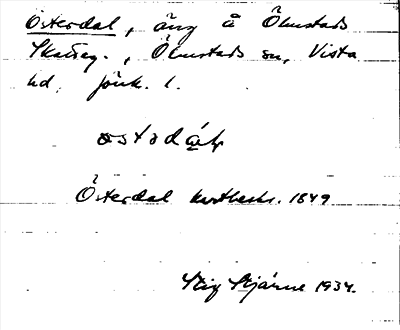 Österdal, äng å Ölmstads
Skatteg., Ölmstads sn, Vista
hd, Jönk. l.
Österdal kartbeskr. 1849
Stig Stjärne 1934.